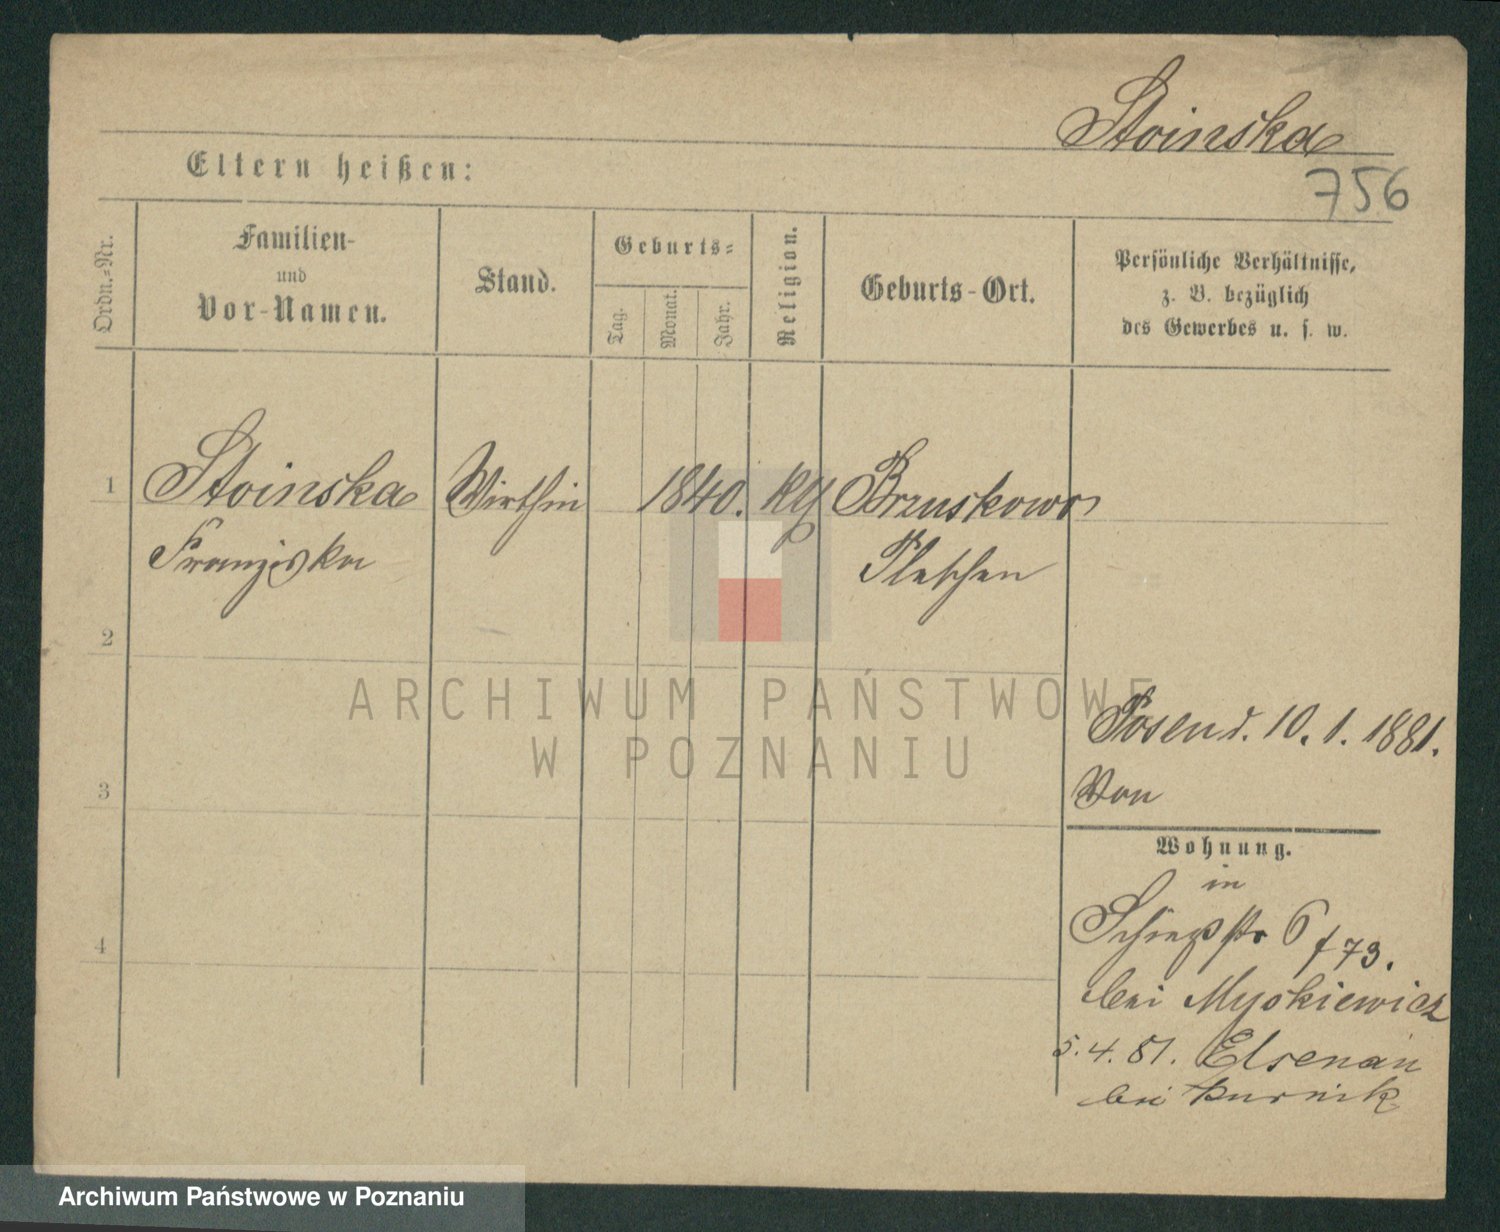 Stoinska
Eltern heißen:
756
Ordn.-Nr.
Familien-
und
Vor-Namen.
Stand.
Geburts-
Tag.
Monat.
Jahr.
Religion.
Geburts-Ort.
Persönliche Verhältnisse,
z. B. bezüglich
des Gewerbes u. s. w.
1 Stoinska Wirthin 1840. Brzuskowo
Franziska Pleschen
2
ARCHIWUM PAŃSTWOWE
W POZNANIU
Posen d. 10. 1. 1881.
Von
3
Wohnung.
in
6 f 73.
4
bei Myskiewicz
5. 4. 81. Elsenau
bei Kurnik
Archiwum Państwowe w Poznaniu